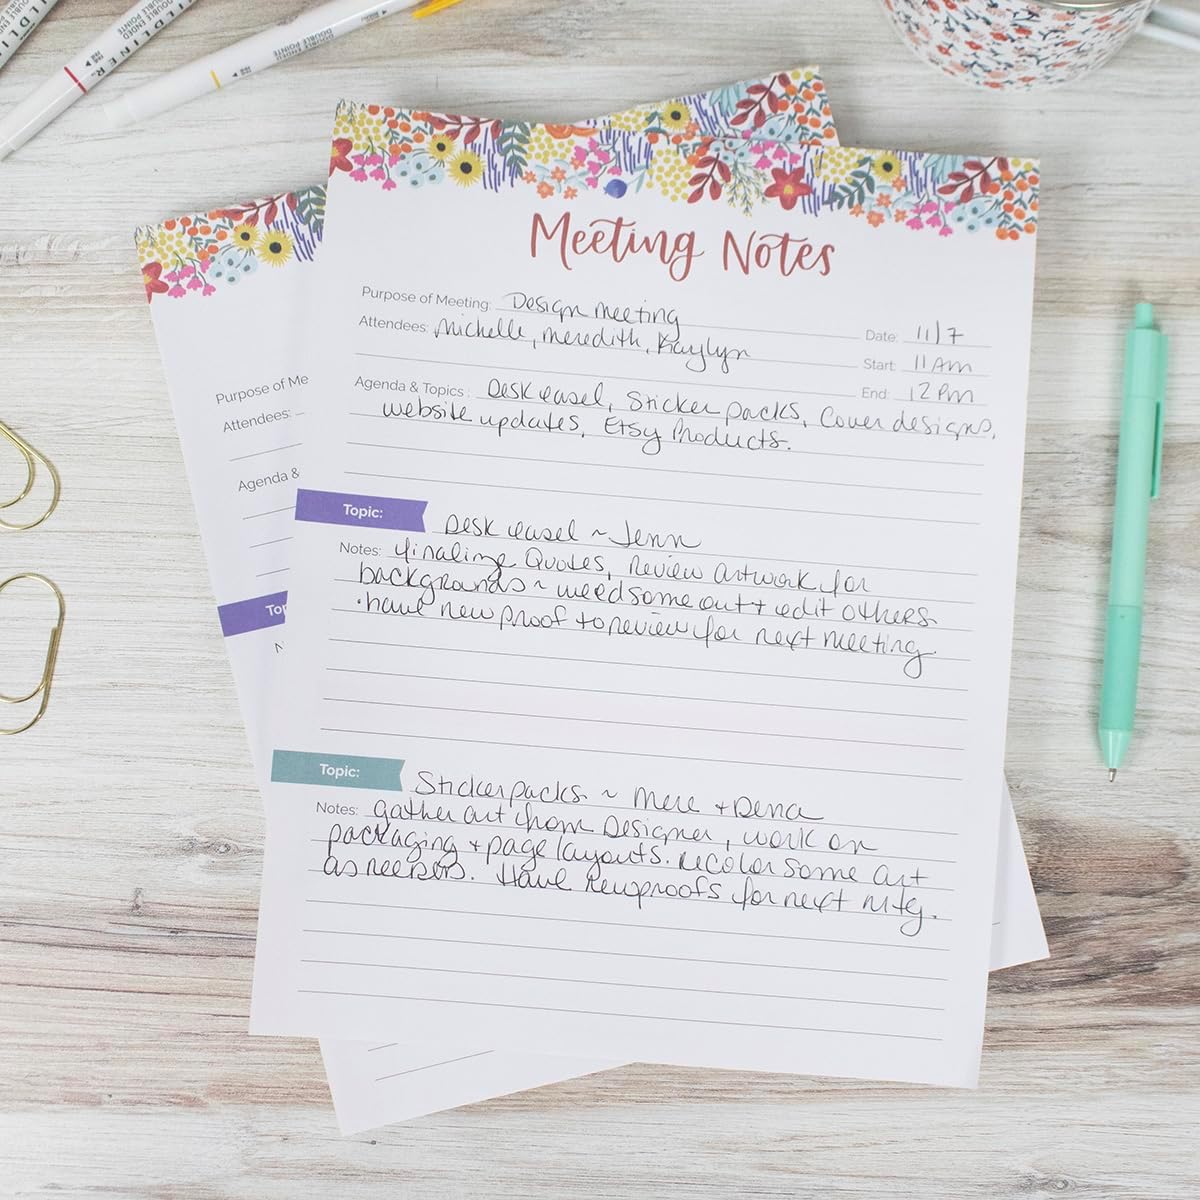 WILDLINER
DOUBLE ENDED
DOUBLE POINTE
DOUBLE ENDED
DOUBLE POINTE
Meeting Notes
Purpose of Meeting: Design meeting
Date: 11/7
Attendees: Michelle, Meredith, Kaylyn
Start: 11 Am
End: 12 Pm
Agenda & Topics : Desk easel, Sticker packs, Cover designs,
website updates, Etsy Products.
Topic: Desk easel ~ Jenn
Notes: finalize Quotes, review artwork for
backgrounds ~ weed some out + edit others.
· have new proof to review for next meeting.
Topic: Sticker packs ~ Mere + Dena
Notes: gather art from Designer, work on
packaging + page layouts. recolor some art
as needed. Have new proofs for next mtg.
Purpose of Me
Attendees:
Agenda &
Top
N